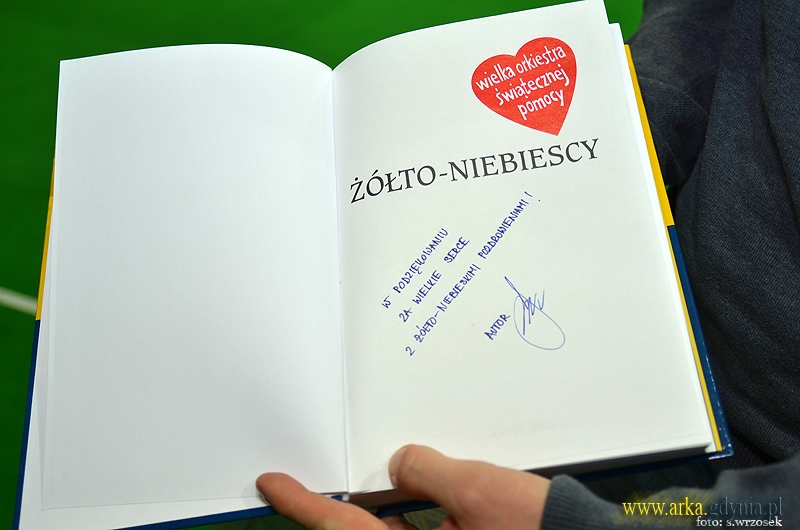 wielka orkiestra
świątecznej
pomocy
ŻÓŁTO-NIEBIESCY
W PODZIĘKOWANIU
ZA WIELKIE SERCE
Z ŻÓŁTO-NIEBIESKIMI POZDROWIENIAMI!
AUTOR
www.arka.gdynia.pl
foto: s.wrzosek